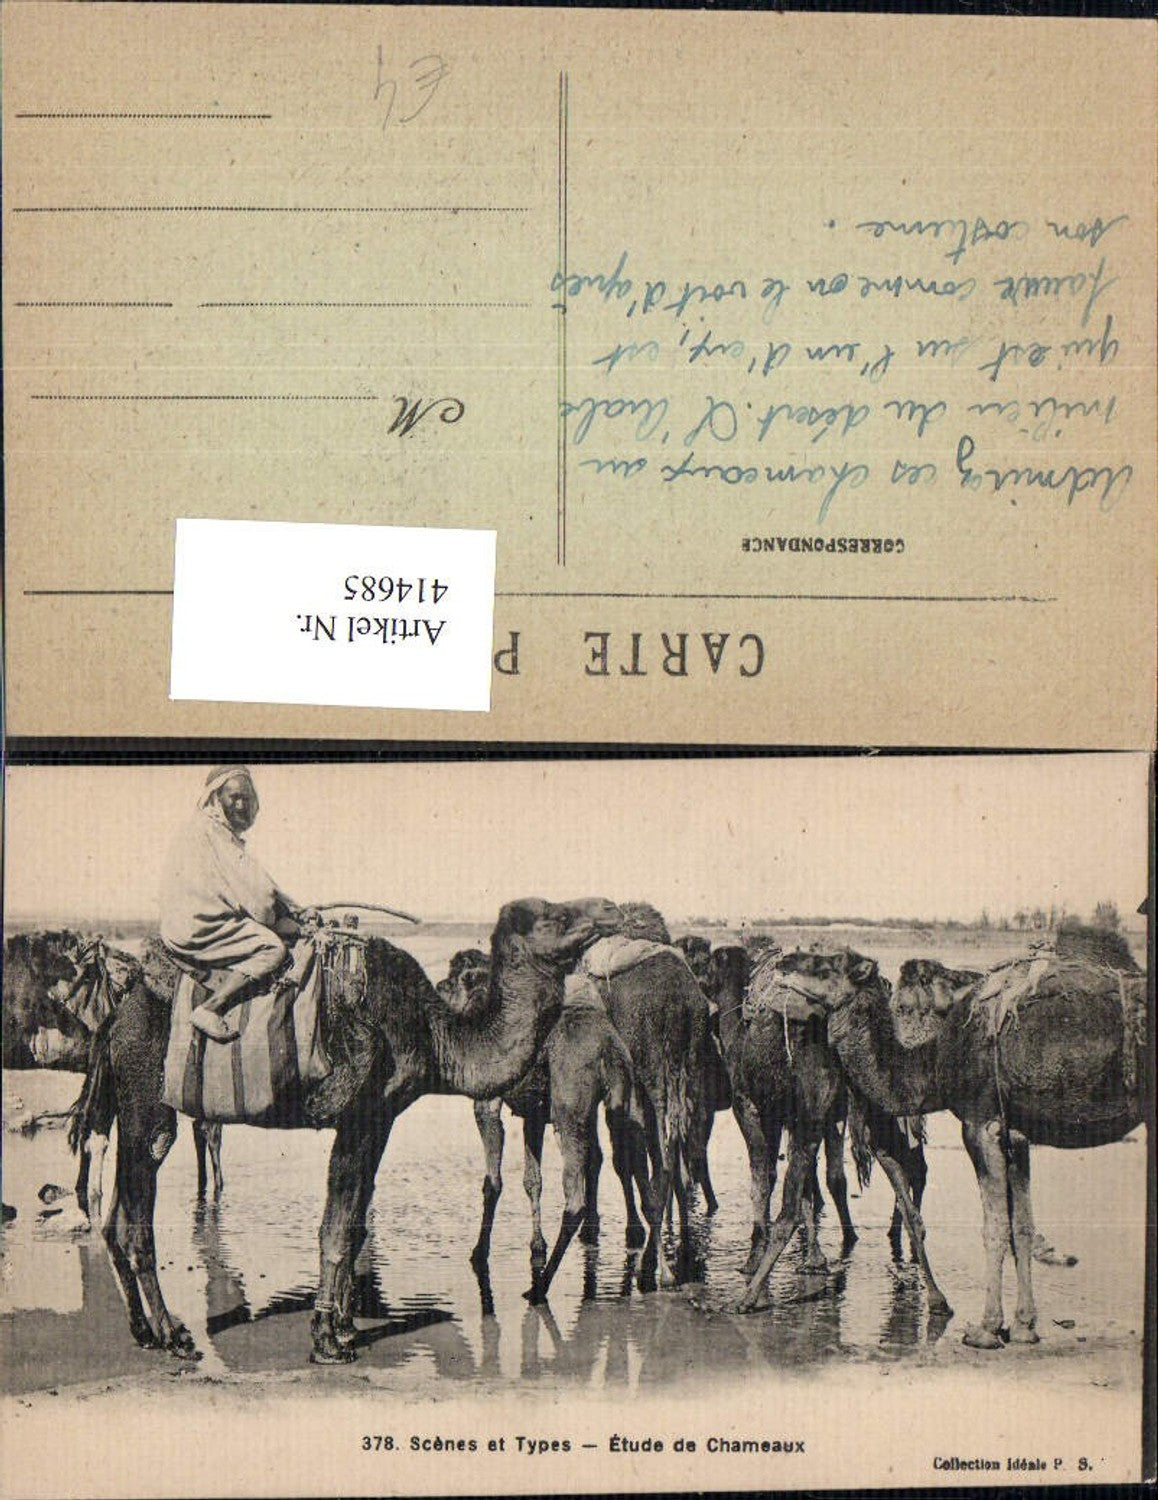 CARTE P
Artikel Nr.
414685
CORRESPONDANCE
Admirez ces chameaux au
milieu du désert. L'Arabe
qui est sur l'un d'eux, est
pauvre comme on le voit d'après
son costume.
M
€4
378. Scènes et Types — Étude de Chameaux
Collection Idéale P. S.